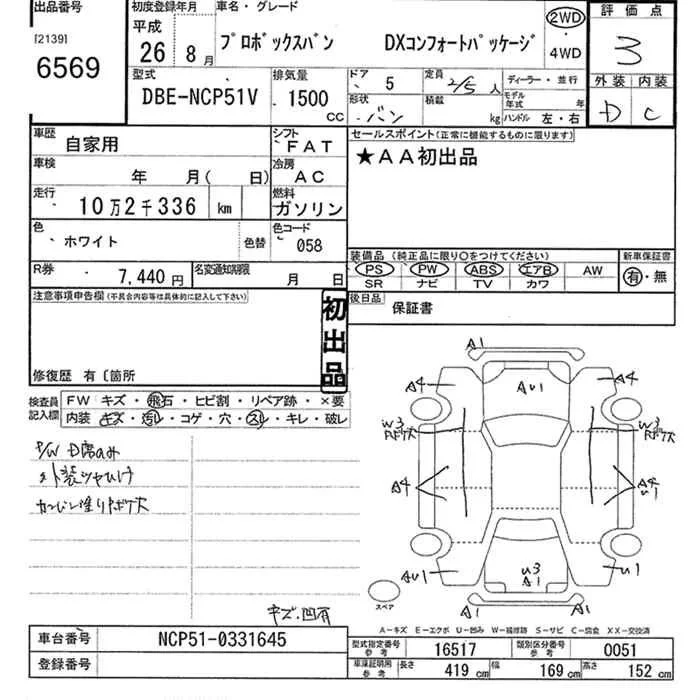 出品番号
[2139]
6569
初度登録年月
平成
26 8月
車名・グレード
プロボックスバン DXコンフォートパッケージ
2WD
・
4WD
評価点
3
外装 内装
D C
型式
DBE-NCP51V
排気量
1500
CC
ドア
5
形状
バン
定員
2/5人
積載
kg
ディーラー・並行
モデル年式 年
ハンドル 左・右
車歴
自家用
シフト
FAT
車検
年 月( 日)
冷房
AC
走行
10万2千336 km
燃料
ガソリン
色
ホワイト
色替
色コード
058
R券
7,440円
名変通知期限
月 日
セールスポイント(正常に機能するものに限ります)
★AA初出品
装備品(純正品に限り○をつけてください)
新車保証書
PS PW ABS エアB AW
SR ナビ TV カワ
有・無
注意事項申告欄(不具合内容等は具体的に記入して下さい)
初出品
後日品
保証書
修復歴 有〔箇所
検査員記入欄
FW キズ・飛石・ヒビ割・リペア跡・×要
内装 キズ・汚レ・コゲ・穴・スレ・キレ・破レ
P/W D席のみ
外装ツヤひけ
キズ・凹有
A1
A4 AU1 A4
W3 W3
A4 A4
U1
AU1 U3 U1
A1
A1 A1
スペア
A-キズ E-エクボ U-凹み W-補修跡 S-サビ C-腐食 XX-交換済
車台番号
NCP51-0331645
登録番号
型式指定番号
参考
16517
類別区分番号
参考
0051
車庫証明用
参考
長さ
419 cm
幅
169 cm
高さ
152 cm